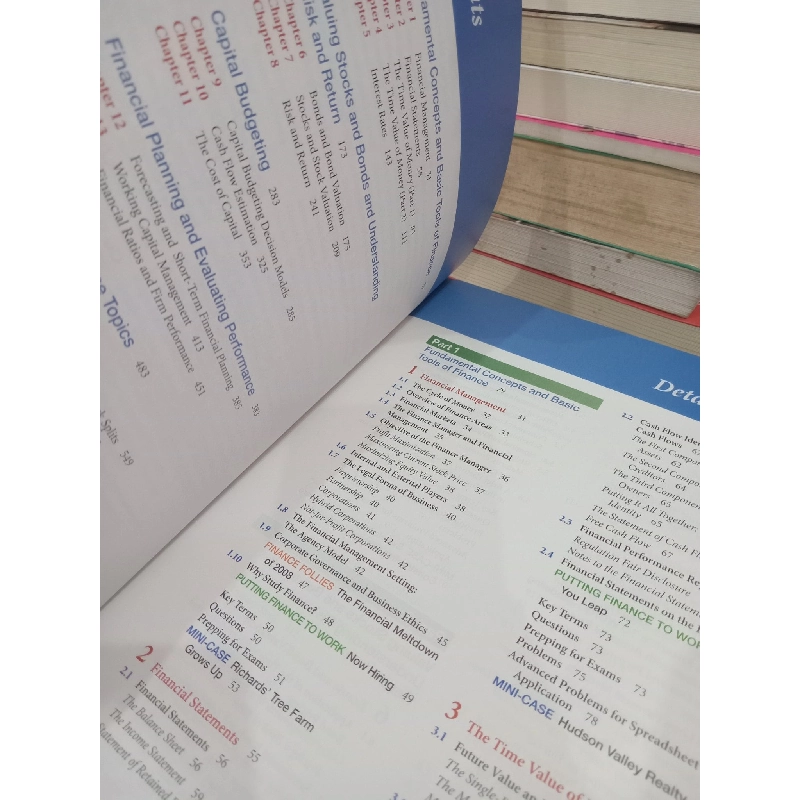 Fundamental Concepts and Basic Tools of Finance
Financial Management 31
Financial Statements 55
The Time Value of Money (Part 1)
The Time Value of Money (Part 2) 111
Interest Rates 143
Stocks and Bonds and Understanding
Risk and Return 173
Chapter 6
Bonds and Bond Valuation 175
Chapter 7
Stocks and Stock Valuation 209
Chapter 8
Risk and Return 241
Capital Budgeting 283
Chapter 9
Capital Budgeting Decision Models 285
Chapter 10
Cash Flow Estimation 325
Chapter 11
The Cost of Capital 353
Financial Planning and Evaluating Performance 383
Forecasting and Short-Term Financial Planning 385
Working Capital Management 413
Financial Ratios and Firm Performance 451
Topics 483
Splits 549
Part 1
Fundamental Concepts and Basic
Tools of Finance 29
1 Financial Management 31
1.1 The Cycle of Money 32
1.2 Overview of Finance Areas 33
1.3 Financial Markets 34
1.4 The Finance Manager and Financial
Management 35
1.5 Objective of the Finance Manager 36
Profit Maximization 37
Maximizing Current Stock Price 37
Maximizing Equity Value 38
1.6 Internal and External Players 38
1.7 The Legal Forms of Business 40
Proprietorship 40
Partnership 40
Corporations 41
Hybrid Corporations 42
Not-for-Profit Corporations 42
1.8 The Financial Management Setting:
The Agency Model 42
1.9 Corporate Governance and Business Ethics 45
FINANCE FOLLIES The Financial Meltdown
of 2008 47
1.10 Why Study Finance? 48
PUTTING FINANCE TO WORK Now Hiring 49
Key Terms 50
Questions 50
Prepping for Exams 51
MINI-CASE Richards' Tree Farm
Grows Up 53
2 Financial Statements 55
2.1 Financial Statements 56
The Balance Sheet 56
The Income Statement 59
Statement of Retained
2.2 Cash Flow
Cash Flows
The First
Assets 62
The Second
Creditors 64
The Third
Owners 65
Putting It All Together:
Identity 65
The Statement of Cash
Free Cash Flow 67
2.3 Financial Performance
Regulation Fair Disclosure
Notes to the Financial
2.4 Financial Statements on the
PUTTING FINANCE TO
You Leap 72
Key Terms 73
Questions 73
Prepping for Exams 73
Problems 75
Advanced Problems for Spreadsheet
Application 78
MINI-CASE Hudson Valley Realty
3 The Time Value of
3.1 Future Value and